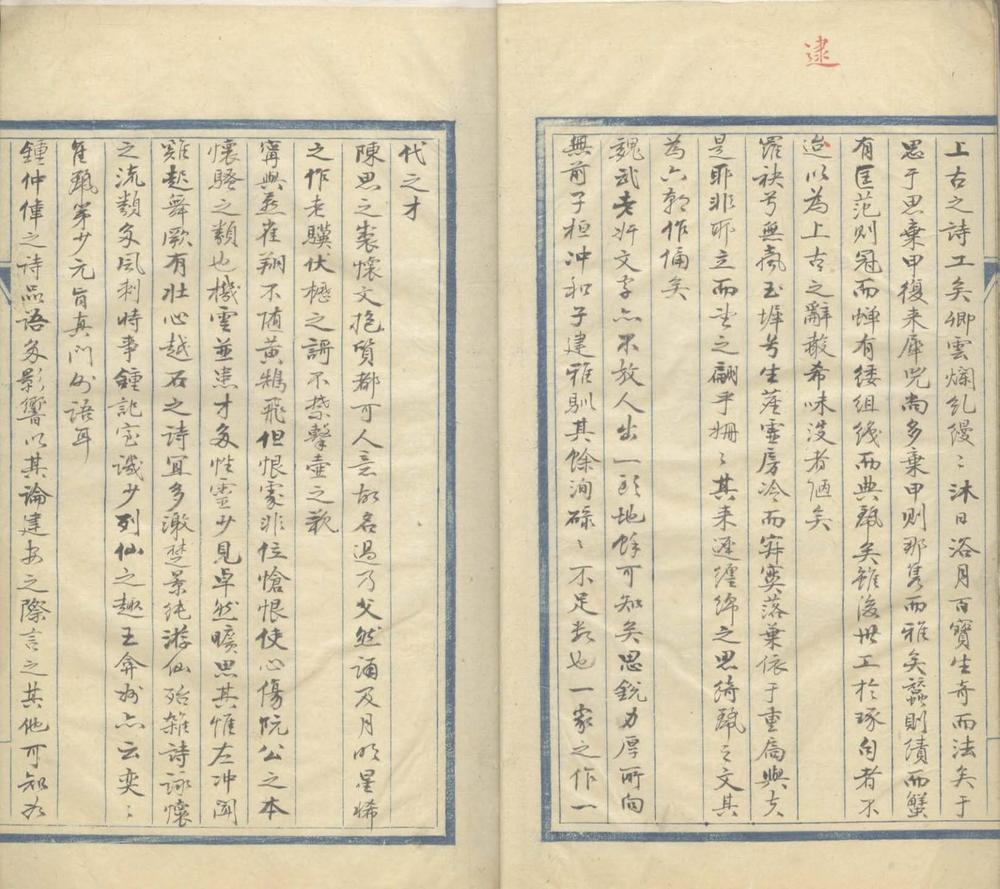 逮
上古之詩工矣卿雲爛乣縵〻沐日浴月百寶生奇而法矣于
思于思棄甲復来犀兕尚多棄甲則那雋而雅矣蠶則績而蟹
有匡范則冠而蟬有緌組綫而典甄矣雖後世工於琢句者不
迨以為上古之辭散希味沒者値矣
羅袂兮無聲玉墀兮生塵虛房冷而寂寞落葉依于重扃與夫
是耶非耶立而望之翩乎姍〻其来遲纏綿之思綺甄之文其
為六朝作俑矣
魏武老奸文字亦不放人出一頭地餘可知矣思銳力厚所向
無前子桓冲和子建雅馴其餘洵碌〻不足數也一家之作一
代之才
陳思之裘懷文抱質都可人意故名過乃父然誦及月明星稀
之作老驥伏櫪之謌不禁擊壺之歌
寧與燕雀翔不随黃鵠飛但恨處非位愴恨使心傷阮公之本
懷騷之類也機雲並患才多性靈少見卓然曠思其惟左冲聞
雞起舞厥有壮心越石之詩宜多激楚景純游仙殆雜詩詠懷
之流類多風刺時事鍾記室譏少列仙之趣王弇州亦云奕〻
隹甄第少元旨真門外語耳
鍾仲偉之詩品語多影響以其論建安之際言之其他可知份